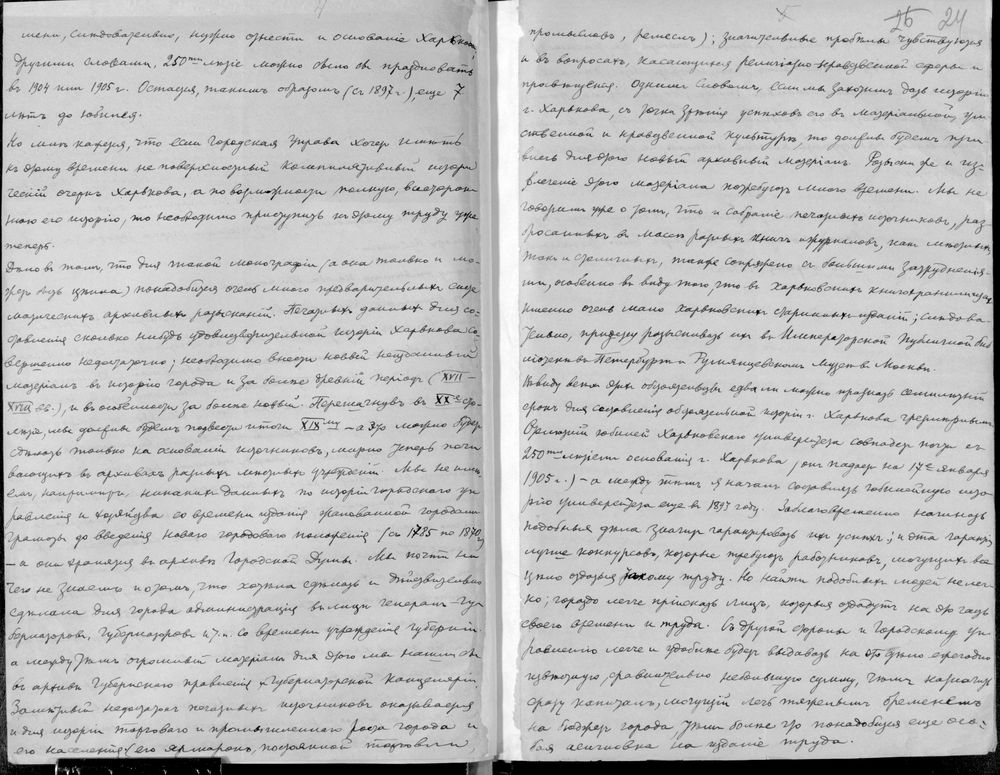 мени, слѣдовательно, нужно отнести и основаніе Харькова
другими словами, 250тилѣтіе можно было бы праздновать
въ 1904 или 1905 г. Остается, такимъ образомъ (съ 1897 г.), еще 7
лѣтъ до юбилея.
Но мнѣ кажется, что если Городская Управа хочетъ имѣть
къ этому времени не поверхностный компилятивный истори
ческій очеркъ Харькова, а по возможности полную, всесторон
нюю его исторію, то необходимо приступить къ этому труду уже
теперь.
Дѣло въ томъ, что для такой монографіи (а она только и мо-
жетъ быть цѣнна) понадобится очень много предварительныхъ систе
матическихъ архивныхъ разысканій. Печатныхъ данныхъ для со-
ставленія сколько нибудь удовлетворительной исторіи Харькова со
вершенно недостаточно; необходимо внести новый неизданный
матеріалъ въ исторію города и за болѣе древній періодъ (XVII –
XVIII вв.), и въ особенности за болѣе новый. Перешагнувъ въ XX-е сто-
лѣтіе, мы должны будемъ подвести итоги XIXму – а это можно будетъ
сдѣлать только на основаніи источниковъ, мирно теперь почи
вающихъ въ архивахъ разныхъ мѣстныхъ учрежденій. Мы не имѣ
емъ, напримѣръ, никакихъ данныхъ по исторіи городского уп
равленія и хозяйства со времени изданія жалованной городамъ
грамоты до введенія новаго городового положенія (съ 1785 по 1870 г)
– а они хранятся въ архивѣ Городской Думы. Мы почти ни
чего не знаемъ и о томъ, что хотѣла сдѣлать и дѣйствительно
сдѣлала для города администрація въ лицѣ генералъ-гу
бернаторовъ, губернаторовъ и т. п. со времени учрежденія губерній.
а между тѣмъ огромный матеріалъ для этого мы нашли бы
въ архивѣ Губернскаго правленія и Губернаторской Канцеляріи.
Замѣтный недостатокъ печатныхъ источниковъ оказывается
и для исторіи торговаго и промышленнаго роста города и
его населенія (его ярмарокъ, постоянной торговли
26 24
промысловъ, ремеслъ); значительные пробѣлы чувствуются
и въ вопросахъ, касающихся религіозно-нравственной сферы и
просвѣщенія. Однимъ словомъ, если мы захотимъ дать исторію
г. Харькова, съ точки зрѣнія успѣховъ его въ матеріальной, ум
ственной и нравственной культурѣ, то должны будемъ при
влечь для этого новый архивный матеріалъ. Розыски же и из-
влеченіе этого матеріала потребуютъ много времени. Мы не
говоримъ уже о томъ, что и собраніе печатныхъ источниковъ, раз
бросанныхъ въ массѣ разныхъ книгъ и журналовъ, какъ мѣстныхъ
такъ и столичныхъ, также сопряжено съ большими затрудненія-
ми, особенно въ виду того, что въ Харьковскихъ книгохранилищахъ
имѣется очень мало Харьковскихъ старинныхъ изданій; слѣдова
тельно, придется разыскивать ихъ въ Императорской Публичной Биб
ліотекѣ въ Петербургѣ и Румянцевскомъ Музеѣ въ Москвѣ.
Въ виду всѣхъ этихъ обстоятельствъ едва ли можно признать семилѣтній
срокъ для составленія обстоятельной исторіи г. Харькова чрезмѣрнымъ.
Столѣтній юбилей Харьковскаго Университета совпадетъ почти съ
250тилѣтіемъ основанія г. Харькова (онъ падаетъ на 17е января
1905 г.) – а между тѣмъ я началъ составлять юбилейную исто
рію университета еще въ 1893 году. Заблаговременно начинать
подобныя дѣла значитъ гарантировать ихъ успѣхъ; и эта гарантія
лучше конкурсовъ, которые требуютъ работниковъ, могущихъ все
цѣло отдаться такому труду. Но найти подобныхъ людей не лег
ко; гораздо легче пріискать лицъ, которыя отдадутъ на это часть
своего времени и труда. Съ другой стороны и Городскому уп
равленію легче и удобнѣе будетъ выдавать на это дѣло ежегодно
извѣстную, сравнительно небольшую сумму, чѣмъ назначить
сразу капиталъ, могущій лечь тяжелымъ бременемъ
на бюджетъ города тѣмъ болѣе что понадобится еще осо-
бая ассигновка на изданіе труда.